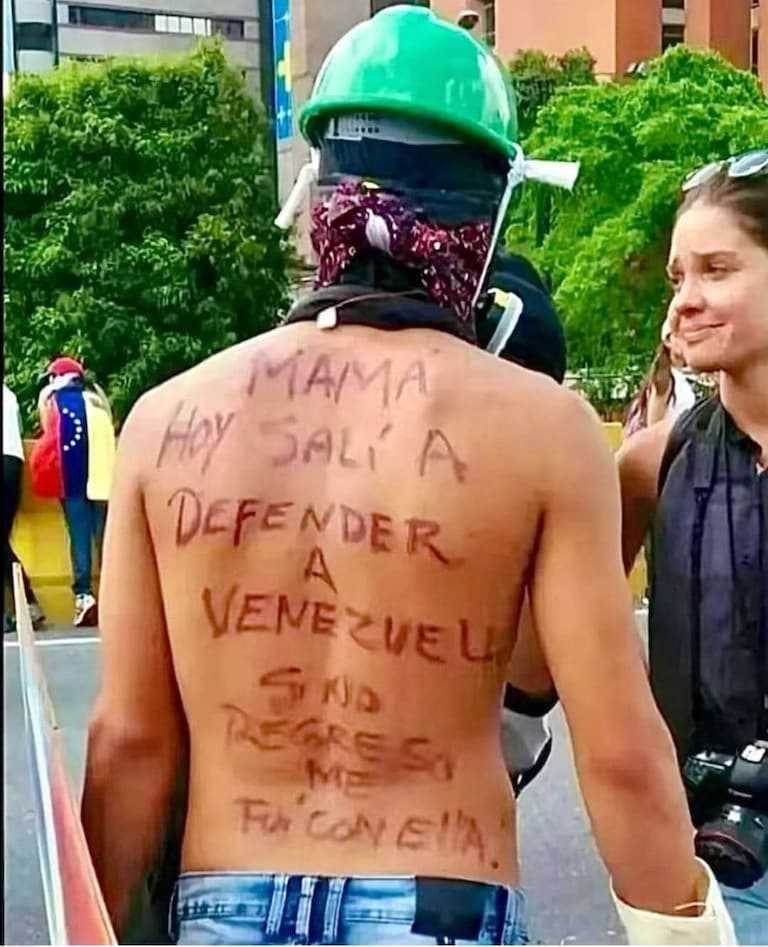 MAMÁ
HOY SALÍ A
DEFENDER
A
VENEZUELA
SI NO
REGRESO
ME
FUÍ CON EllA.